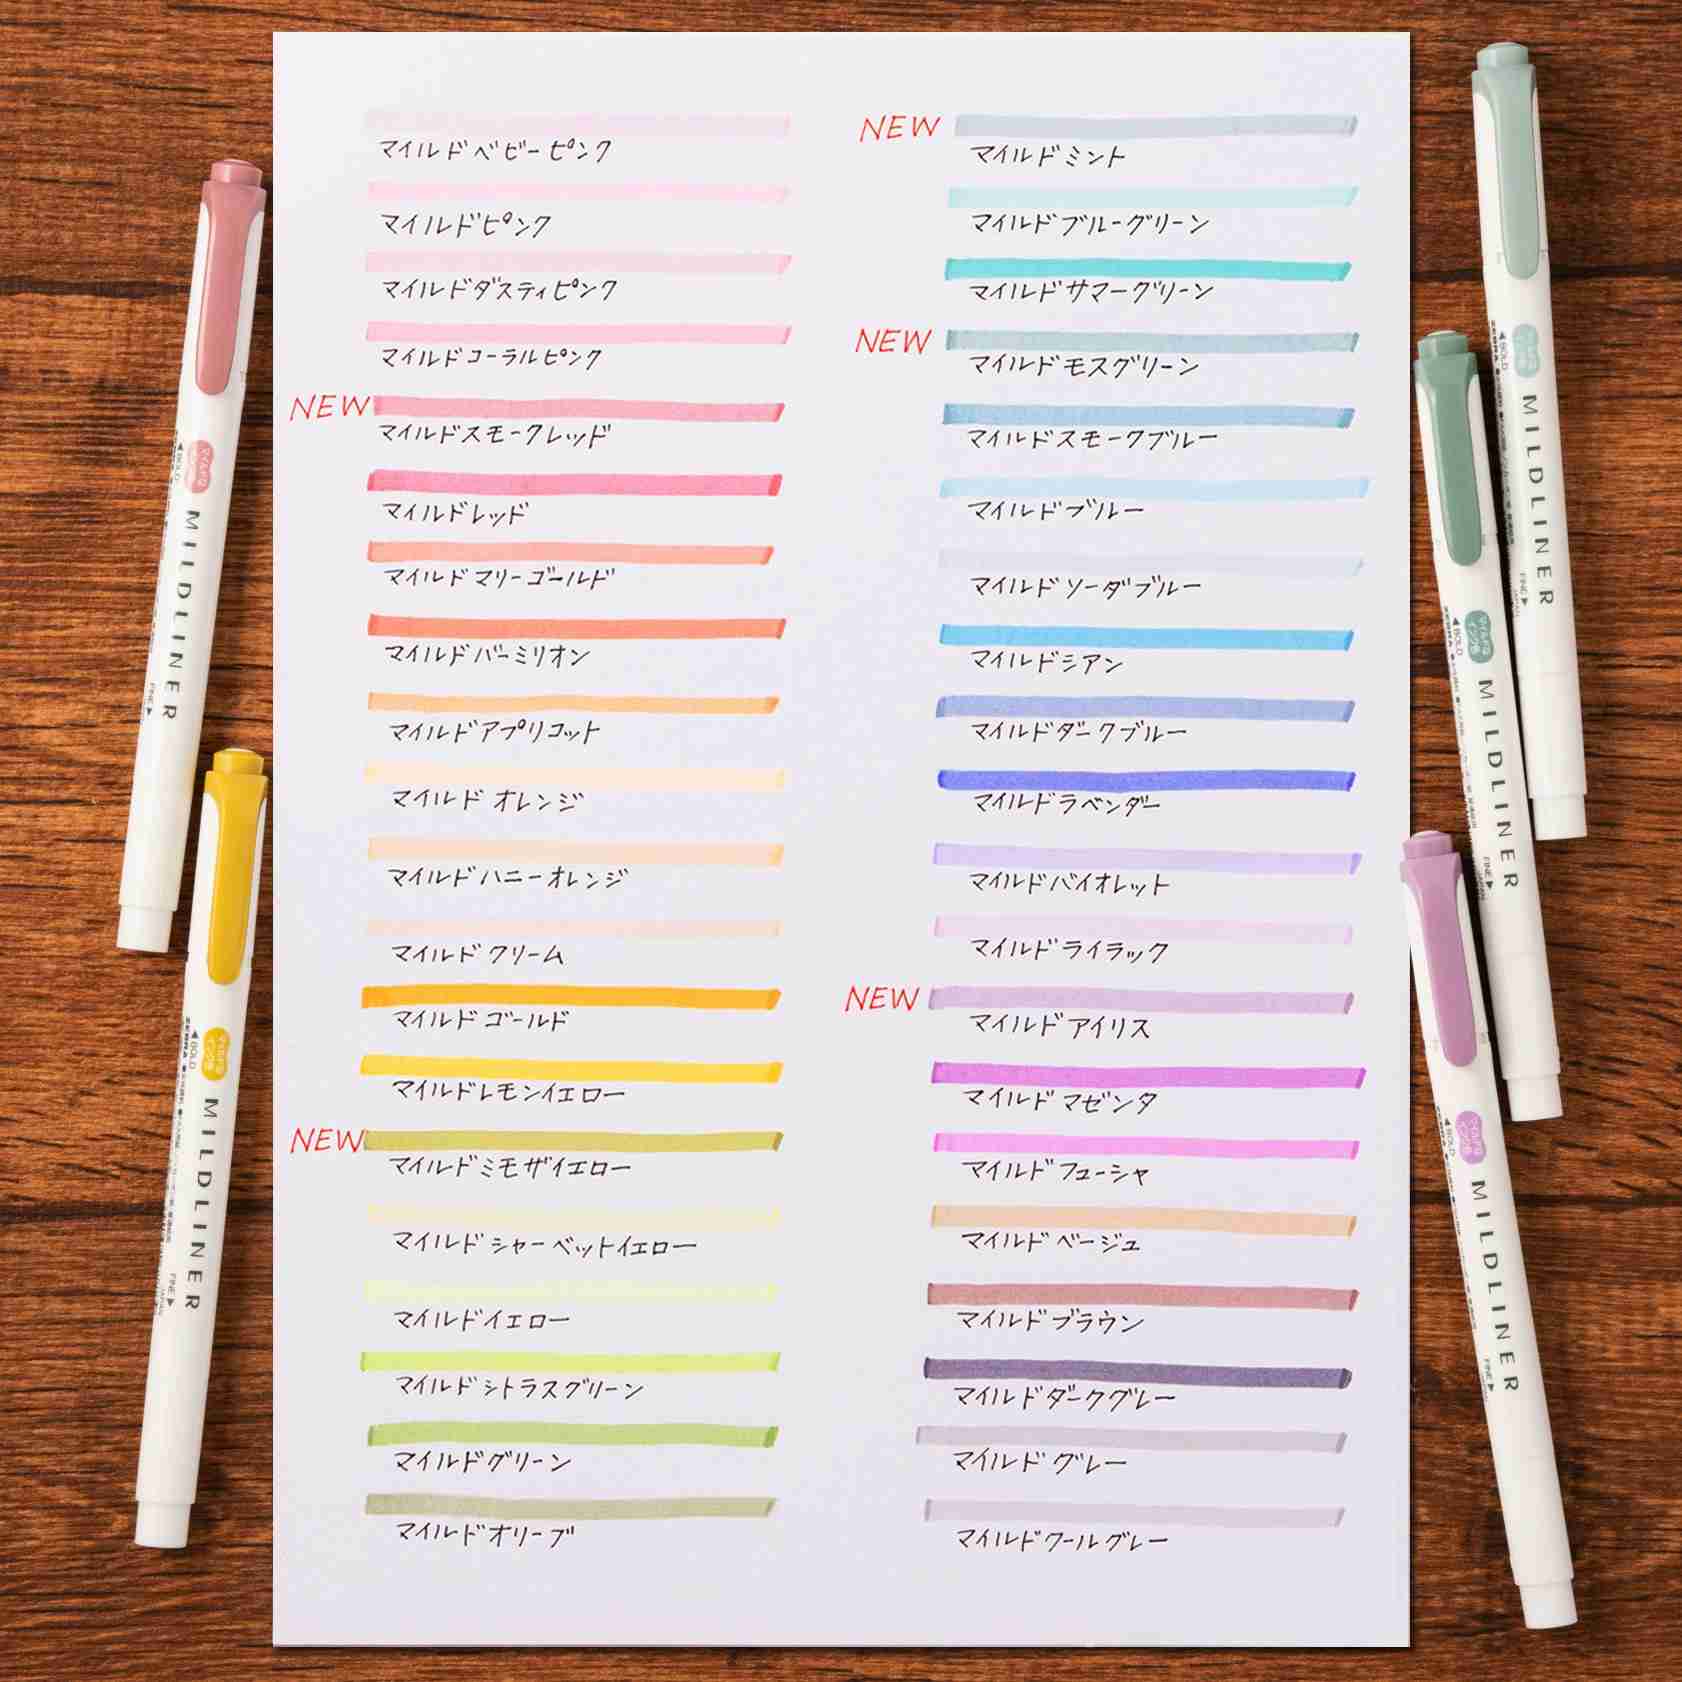 マイルドベビーピンク
マイルドピンク
マイルドダスティピンク
マイルドコーラルピンク
NEW
マイルドスモークレッド
マイルドレッド
マイルドマリーゴールド
マイルドバーミリオン
マイルドアプリコット
マイルドオレンジ
マイルドハニーオレンジ
マイルドクリーム
マイルドゴールド
マイルドレモンイエロー
NEW
マイルドミモザイエロー
マイルドシャーベットイエロー
マイルドイエロー
マイルドシトラスグリーン
マイルドグリーン
マイルドオリーブ
NEW
マイルドミント
マイルドブルーグリーン
マイルドサマーグリーン
NEW
マイルドモスグリーン
マイルドスモークブルー
マイルドブルー
マイルドソーダブルー
マイルドシアン
マイルドダークブルー
マイルドラベンダー
マイルドバイオレット
マイルドライラック
NEW
マイルドアイリス
マイルドマゼンタ
マイルドフューシャ
マイルドベージュ
マイルドブラウン
マイルドダークグレー
マイルドグレー
マイルドクールグレー
◀BOLD
MILDLINER
FINE▶
ZEBRA
◀BOLD
マイルドな
インク色
MILDLINER
FINE▶
JAPAN
ZEBRA
◀BOLD
MILDLINER
FINE▶
JAPAN
ZEBRA
◀BOLD
マイルドな
インク色
MILDLINER
FINE▶
JAPAN
ZEBRA
◀BOLD
マイルドな
インク色
MILDLINER
FINE▶